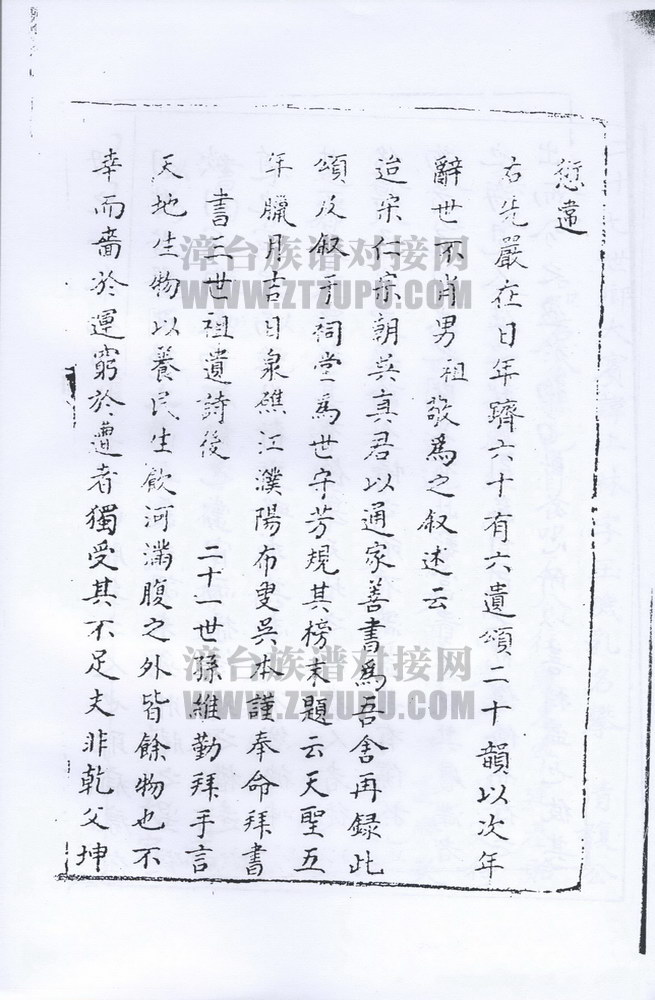 愆違
右先嚴在日年躋六十有六遺頌二十韻以次年
辭世不肖男祖敬爲之叙述云
迨宋仁宗朝吳真君以通家善書爲吾舍再録此
頌及叙于祠堂爲世守芳規其榜末題云天聖五
年臘月吉日泉礁江濮陽布叟吳本謹奉命拜書
書三世祖遺詩後 二十一世孫維勤拜手言
天地生物以養民生飲河滿腹之外皆餘物也不
幸而嗇於運窮於遭者獨受其不足夫非乾父坤
漳台族谱对接网
WWW.ZTZUPU.COM
漳台族谱对接网
WWW.ZTZUPU.COM